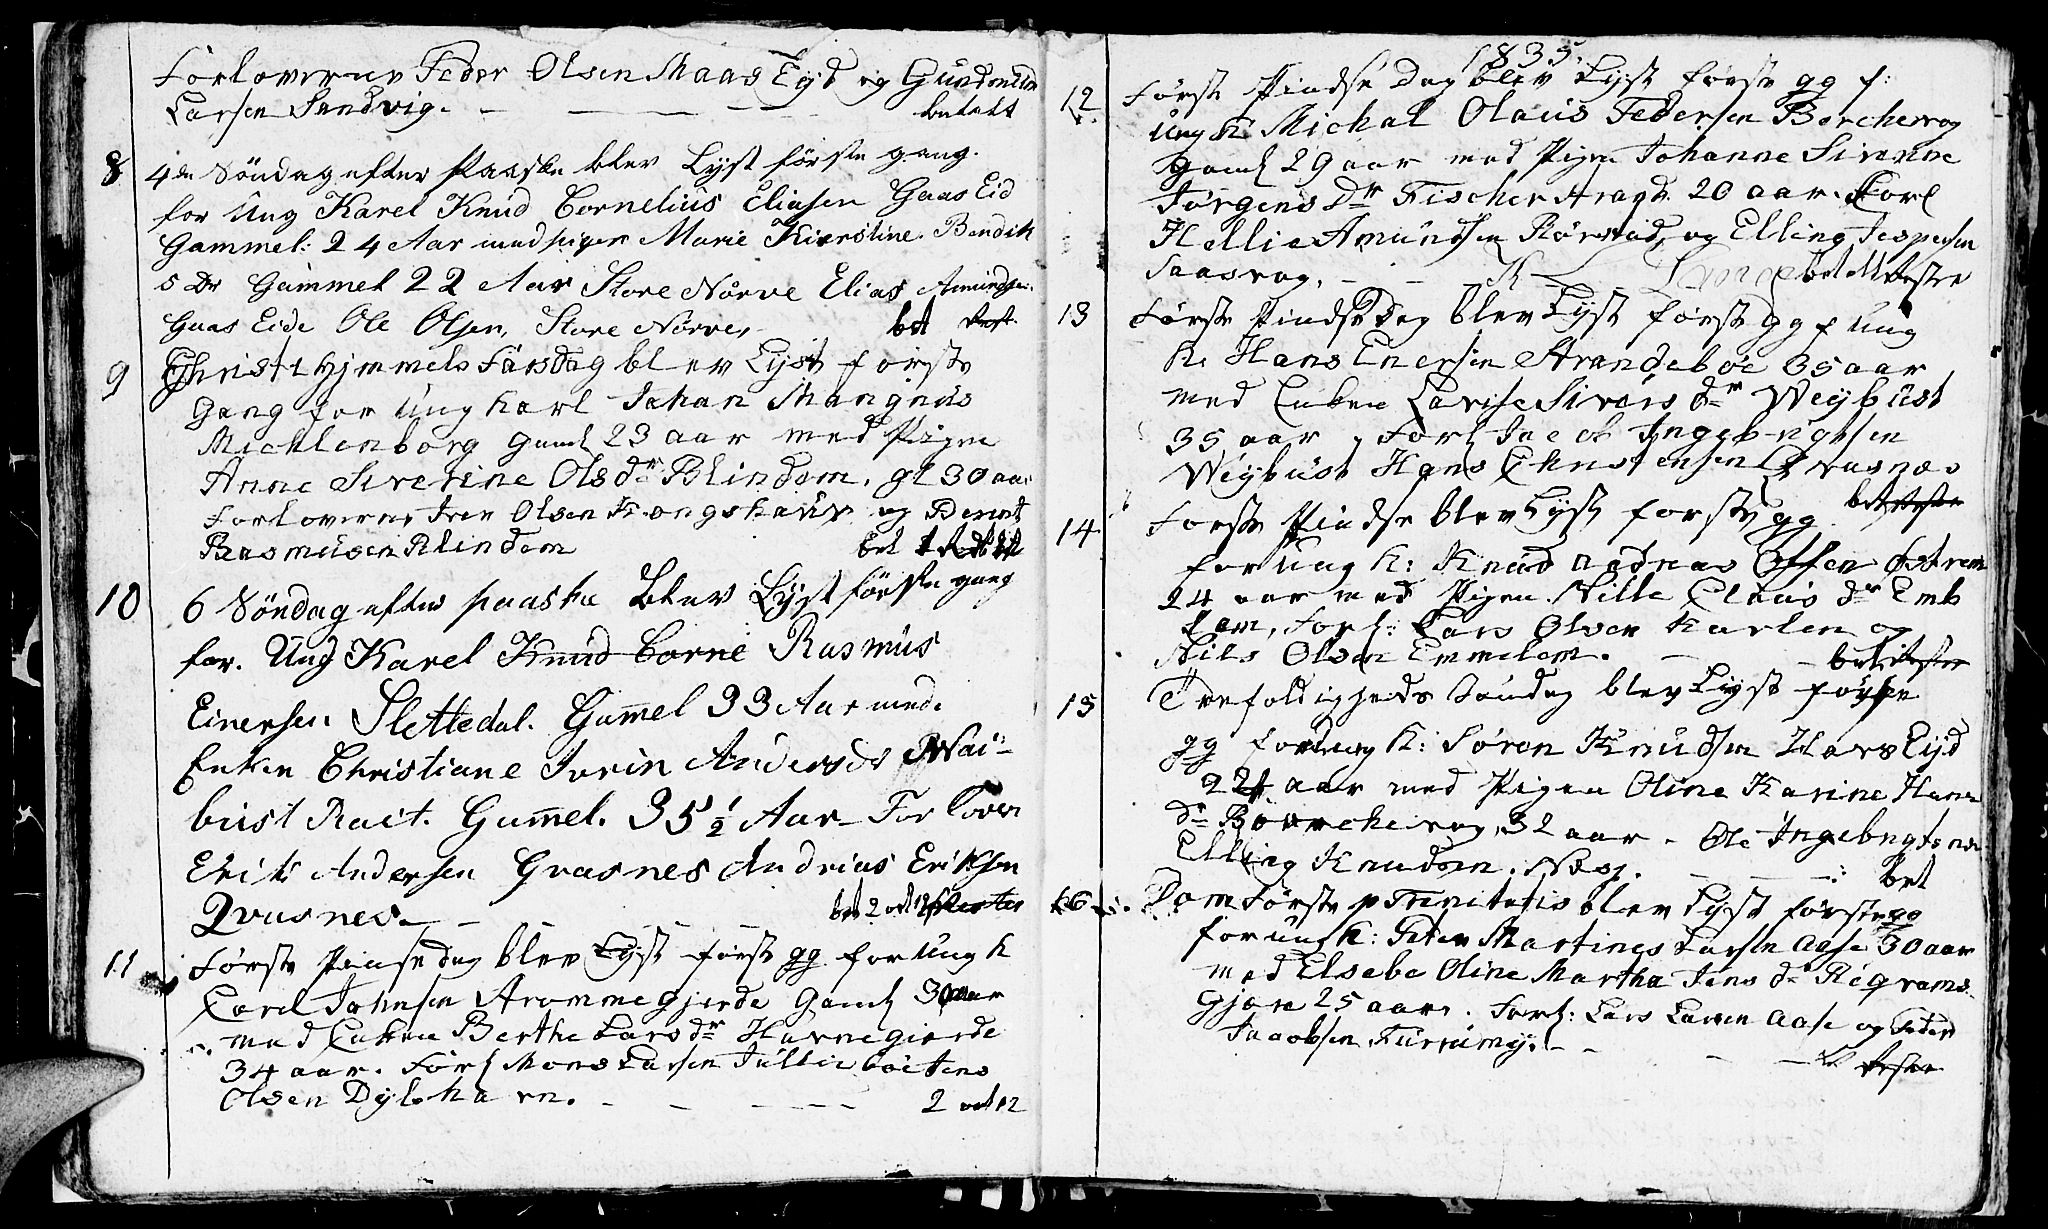 Forloverne Peder Olsen Maas Eyd og Gundmund
Larsen Sandvig. betalt
8 4de Söndag efter Paaske blev Lyst förste gang.
for Ung Karel Knud Cornelius Eliasen Gaas Eid
Gammel: 24 Aar med pigen Marie Kierstine Bendik
s Dr Gammel 22 Aar Store Nörve Elias Amundsen
Gaas Eide Ole Olsen, Store Nörve, bet
9 Christi Hjmmels Farsdag blev Lyst förste
Gang for Ung Karl Johan Mangnus
Michlenborg Gaml 23 aar med Pigen
Anne Siverine Olsdr Blindem, gl 30 aar
Forloverne Iver Olsen Kongshaug og Bernt
Rasmusen Blindem bet
10 6 Söndag efter paaske blev Lyst förste gang
for. Ung Karel Knud Corne Rasmus
Einersen Slettedal. Gam̄el 33 Aar med.
Enken Christiane Iverin Andersdr Wai-
bust Rait. Gam̄el. 35½ Aar For lover
Erik Andersen Gvasnes Andrias Eriksen
Qvasnes. bet 2 ort 12
11 Förste Pinsedag blev Lyst först gg for Ung K
Carel Johnsen Arommegjerde Gaml 30 aar
med Enken Berthe Larsdr Havnegierde
34 aar. Forl Mons Larsen Jens
Olsen Dybha vn. 2 ort 12
1835.
12 Förste Pindse Dag blev Lyst förste gg f:
Ung K: Michal Olaus Pedersen Borchevog
gaml 29 aar med Pigen Johanne Sivenne
Jörgens Dr Fischer 20 aar. Forl
Hellie Amundsen Rörstad, og Elling Jespersen
Saasvog. betalt
13 Förste Pindse Dag blev Lyst förste gg f Ung
K. Hans Enersen Strandeböe 35 aar
med Enken Lavise Sivers dr Weybust
35 aar, Forl Jacob Ingebrigtsen
Weybust Hans Christensen Qvasnæs
bet
14 Förste Pindse blev Lyst förste gg
for Ung K: Knud Andreas Olsen Östrem
24 aar med Pigen Nille Claus dr Emb
lem, Forl: Lars Olsen Karlen og
Nils Olsen Emmelem. bet
15 Trefoldigheds Söndag blev Lyst förse
gg for Ung K: Sören Knudsen HarsEijd
22 aar med Pigen Oline Karine Hans
dr Borchevog, 32 aar. Ole Ingebrigtsen
Elling Knudsen. bet
16 Dom Förste p Trenitatis blev Lyst förste gg
for Ung K: Peter Martines Larsen Aase 30 aar
med Elsebe Oline Martha Jens dr Rögrams
Gjære 25 aar. Forl: Lars Larsen Aase og Peder
Jacobsen